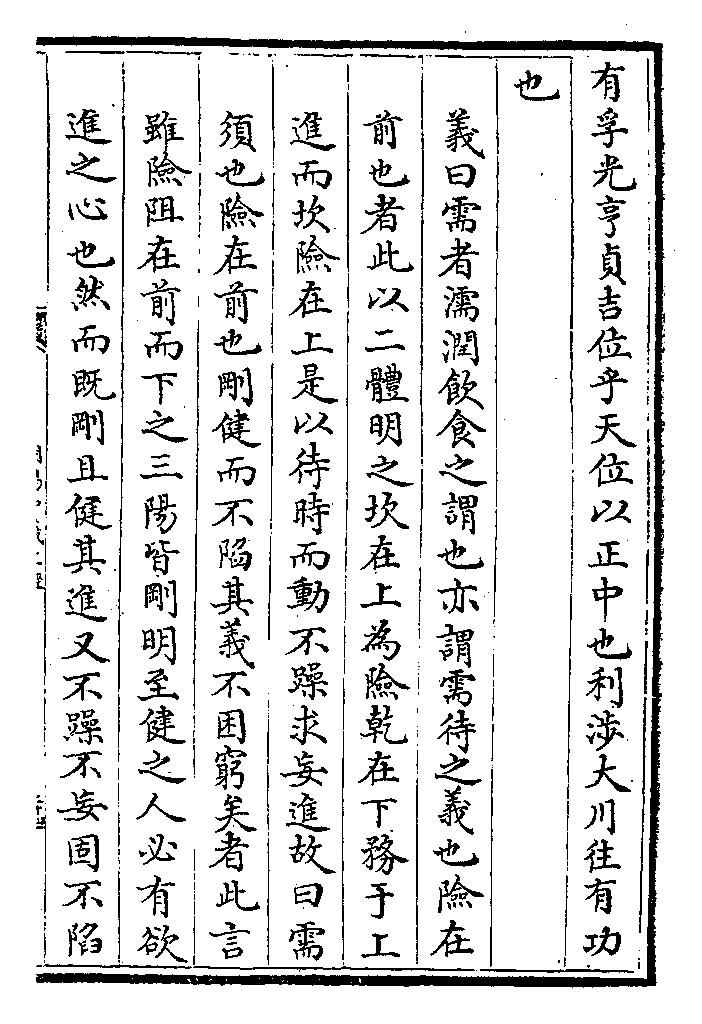 有孚光亨貞吉位乎天位以正中也利涉大川往有功
也
義曰需者濡潤飲食之謂也亦謂需待之義也險在
前也者此以二體明之坎在上為險乾在下務于上
進而坎險在上是以待時而動不躁求妄進故曰需
須也險在前也剛健而不陷其義不困窮矣者此言
雖險阻在前而下之三陽皆剛明至健之人必有欲
進之心也然而既剛且健其進又不躁不妄固不陷